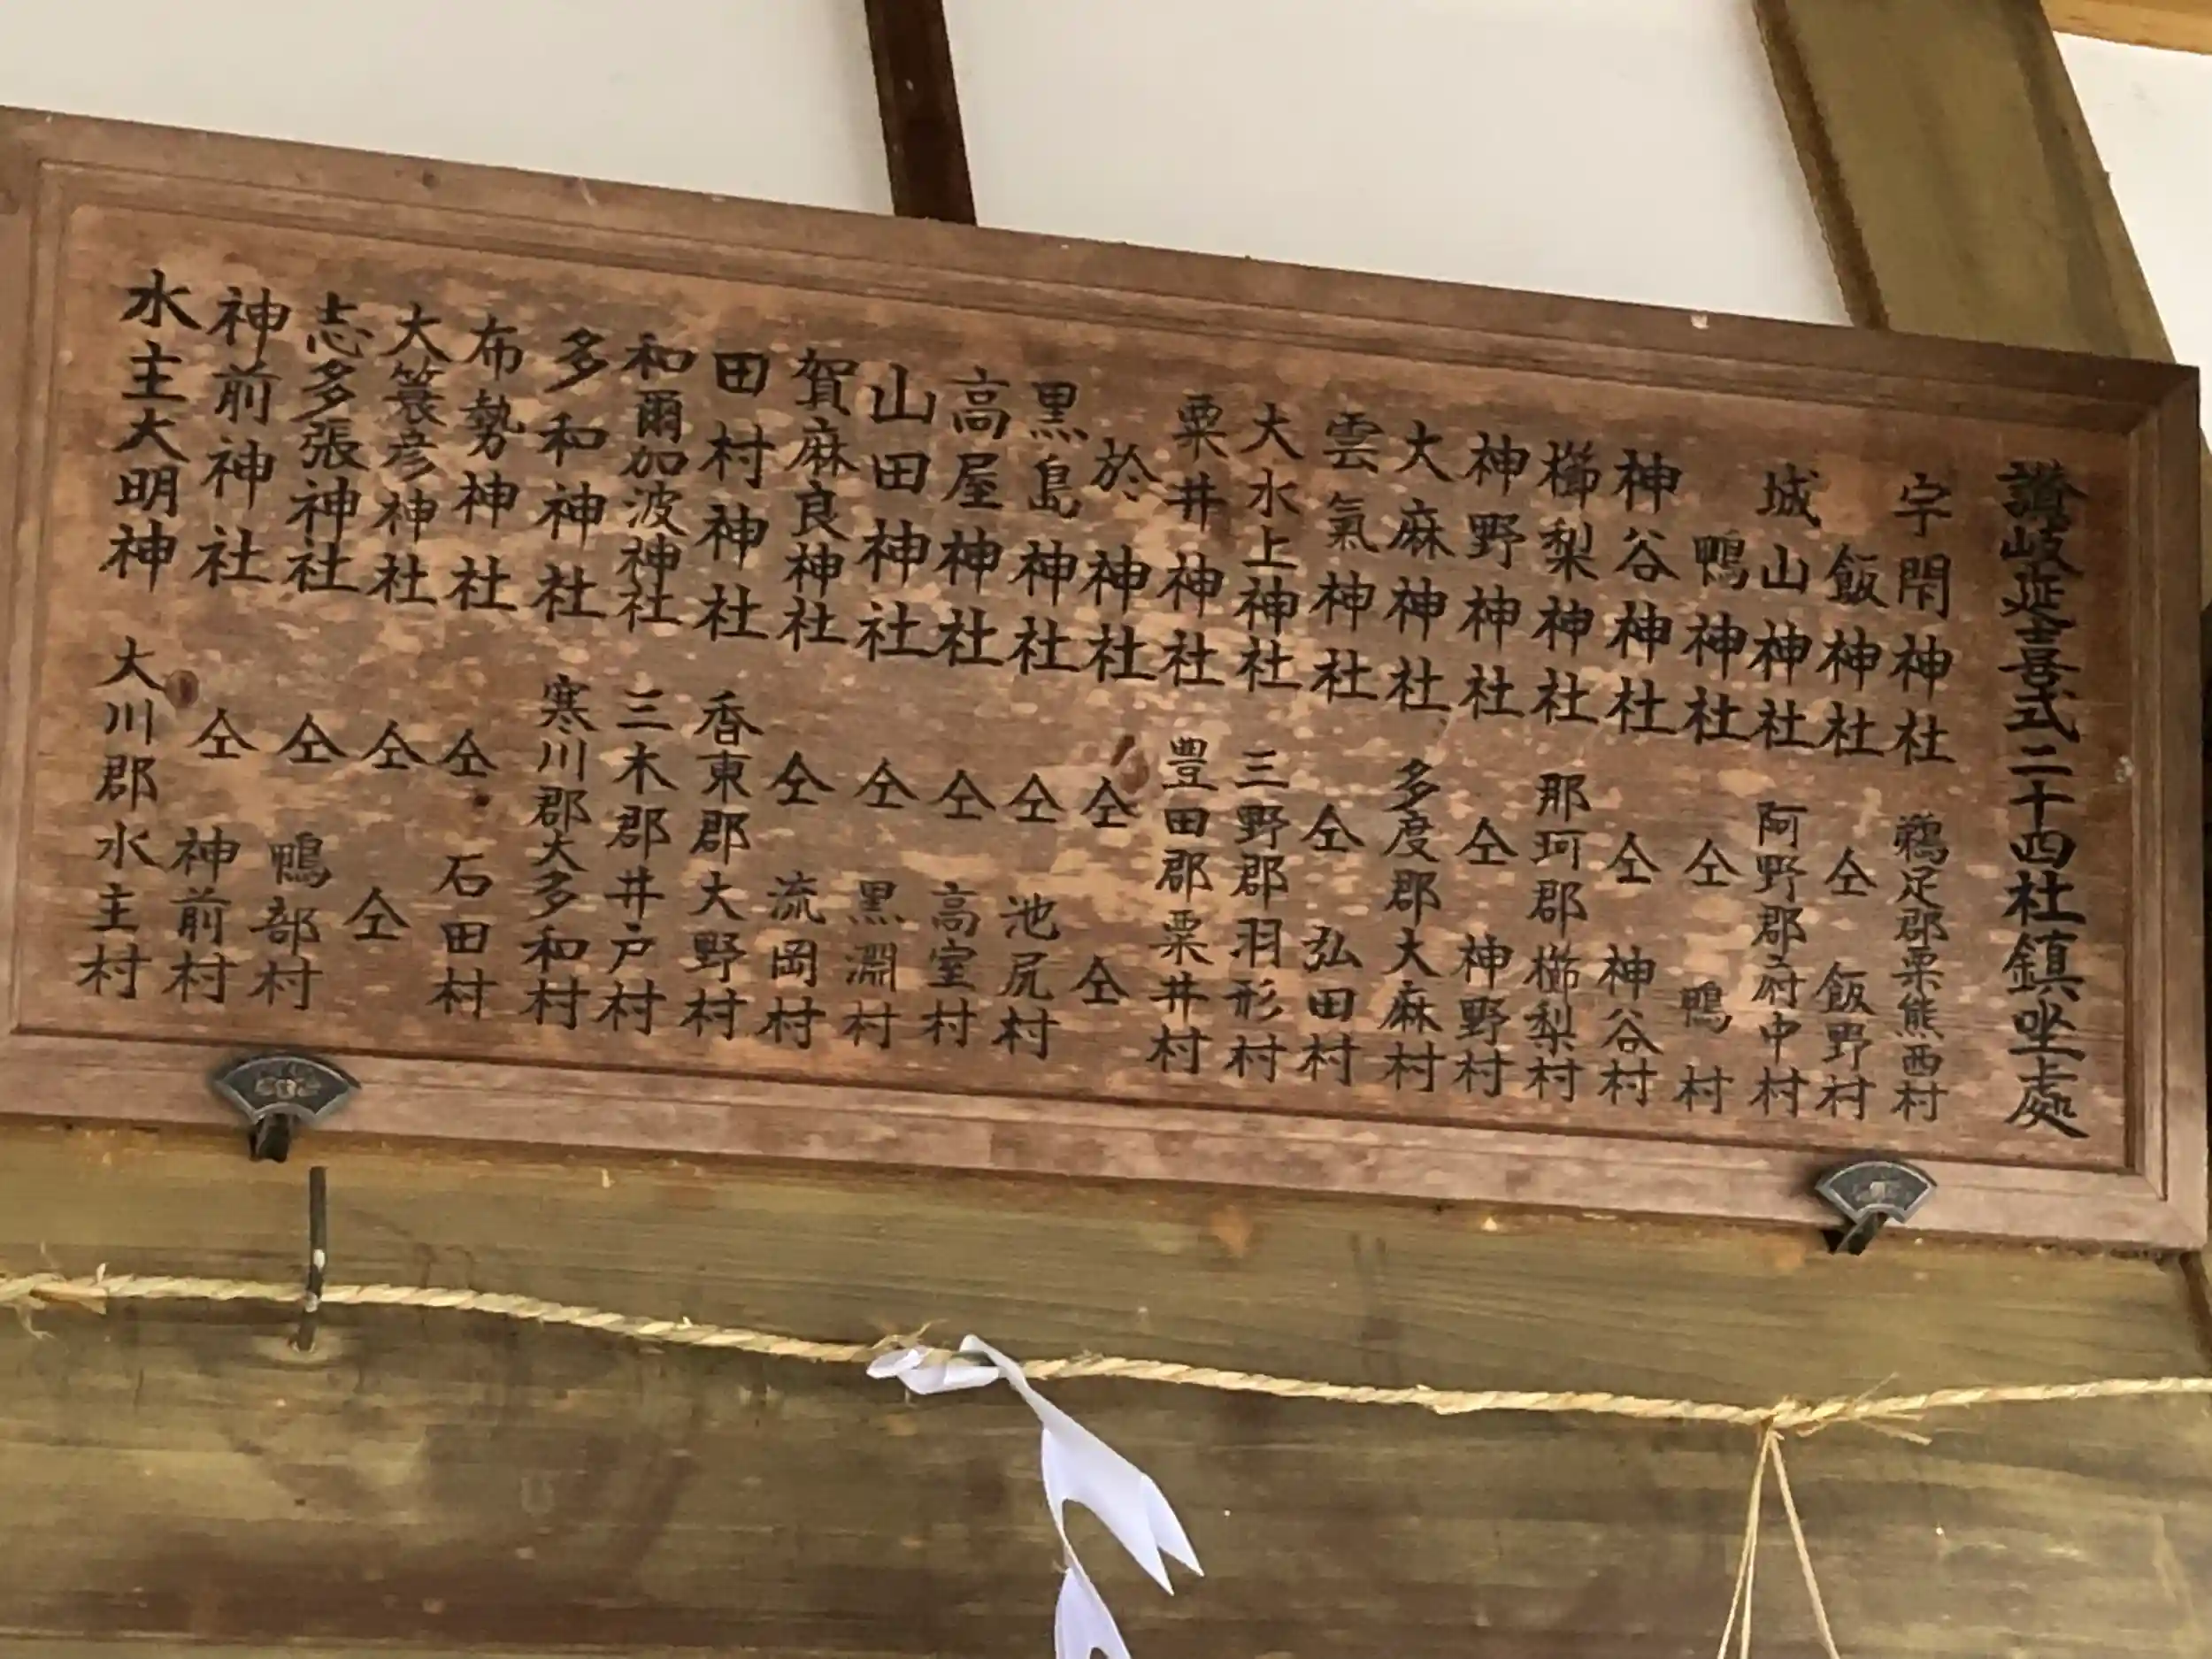 讃岐延喜式二十四社鎮坐処
宇閇神社 鵜足郡栗熊西村
飯神社 仝 飯野村
城山神社 阿野郡府中村
鴨神社 仝 鴨村
神谷神社 仝 神谷村
櫛梨神社 那珂郡櫛梨村
神野神社 仝 神野村
大麻神社 多度郡大麻村
雲氣神社 仝 弘田村
大水上神社 三野郡羽形村
粟井神社 豊田郡粟井村
於神社 仝 仝
黒島神社 仝 池尻村
高屋神社 仝 高室村
山田神社 仝 黒淵村
賀麻良神社 仝 流岡村
田村神社 香東郡大野村
和爾加波神社 三木郡井戸村
多和神社 寒川郡大多和村
布勢神社 仝 石田村
大簑彦神社 仝 仝
志多張神社 仝 鴨部村
神前神社 仝 神前村
水主大明神 大川郡水主村